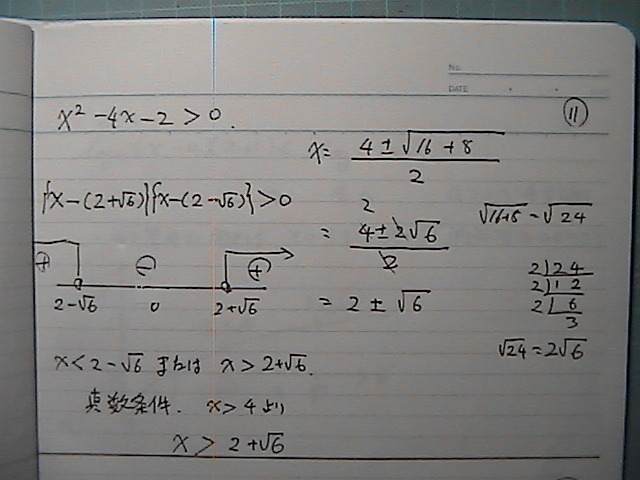 No.
DATE
⑪
x² - 4x - 2 > 0.
x = (4 ± √(16 + 8)) / 2
{x - (2+√6)}{x - (2-√6)} > 0
2
= (4 ± 2√6) / 2
√(16+8) = √24
⊕ ⊖ ⊕
2-√6 0 2+√6
= 2 ± √6
2)24
2)12
2)6
3
√24 = 2√6
x < 2 - √6 または x > 2+√6.
真数条件. x > 4 より
x > 2 + √6